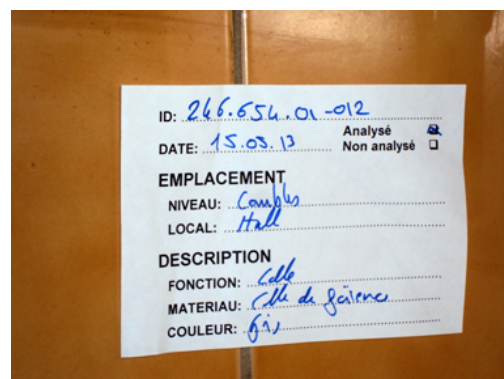 ID: 246.654.01-012
Analysé
DATE: 15.03.13 Non analysé
EMPLACEMENT
NIVEAU: Combles
LOCAL: Hall
DESCRIPTION
FONCTION: Colle
MATERIAU: Colle de faïence
COULEUR: Gris